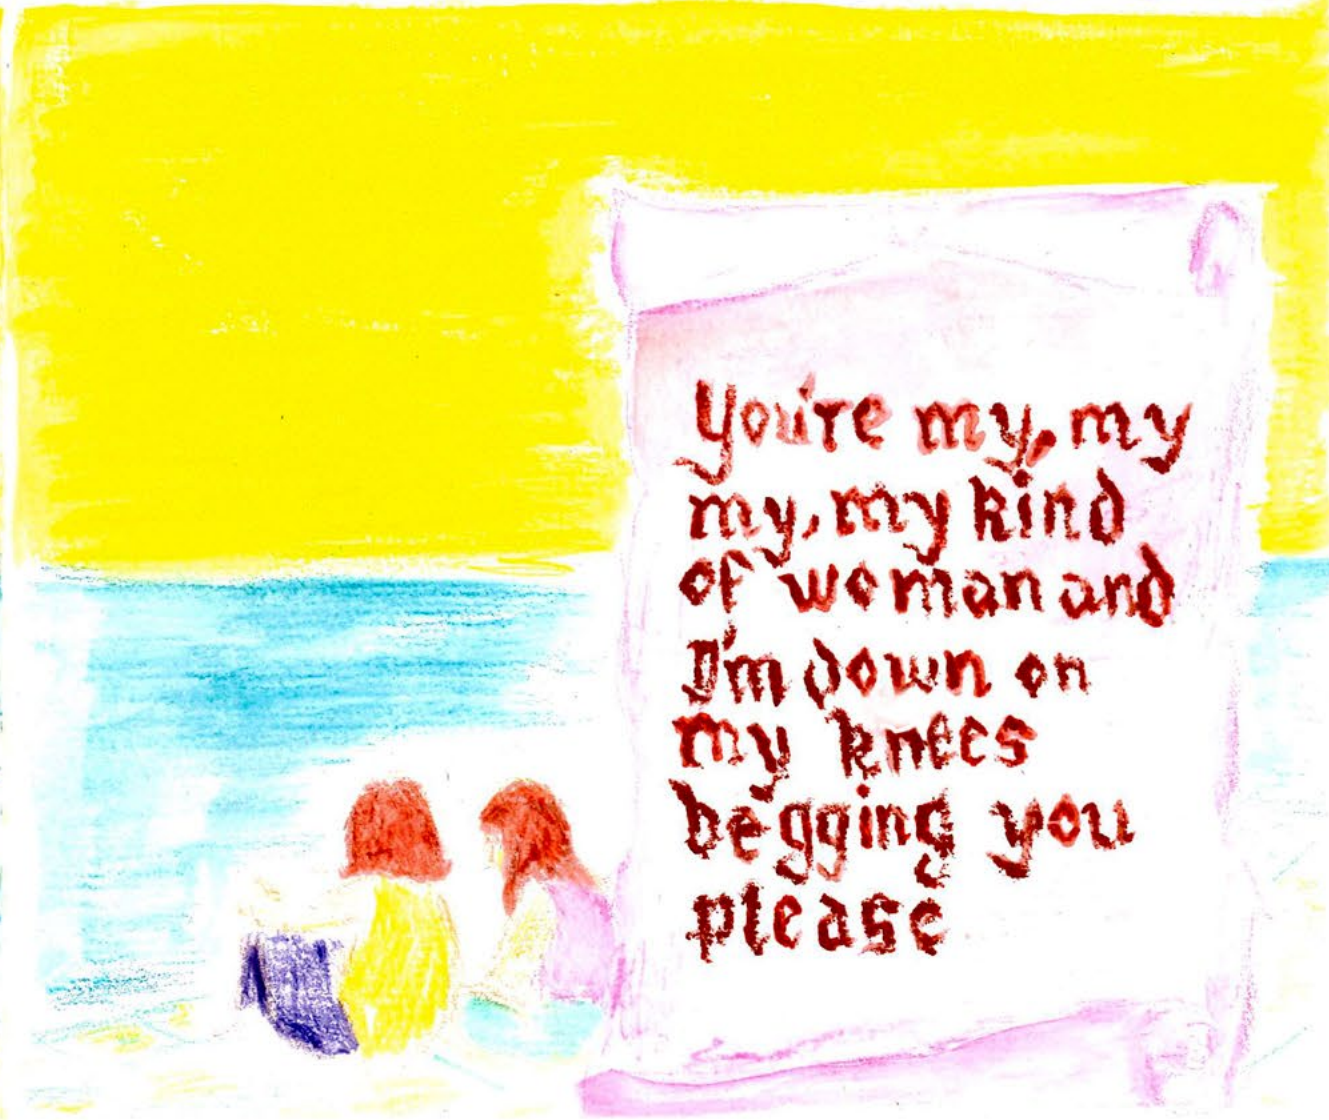 You're my, my
my, my kind
of woman and
I'm down on
my knees
begging you
please